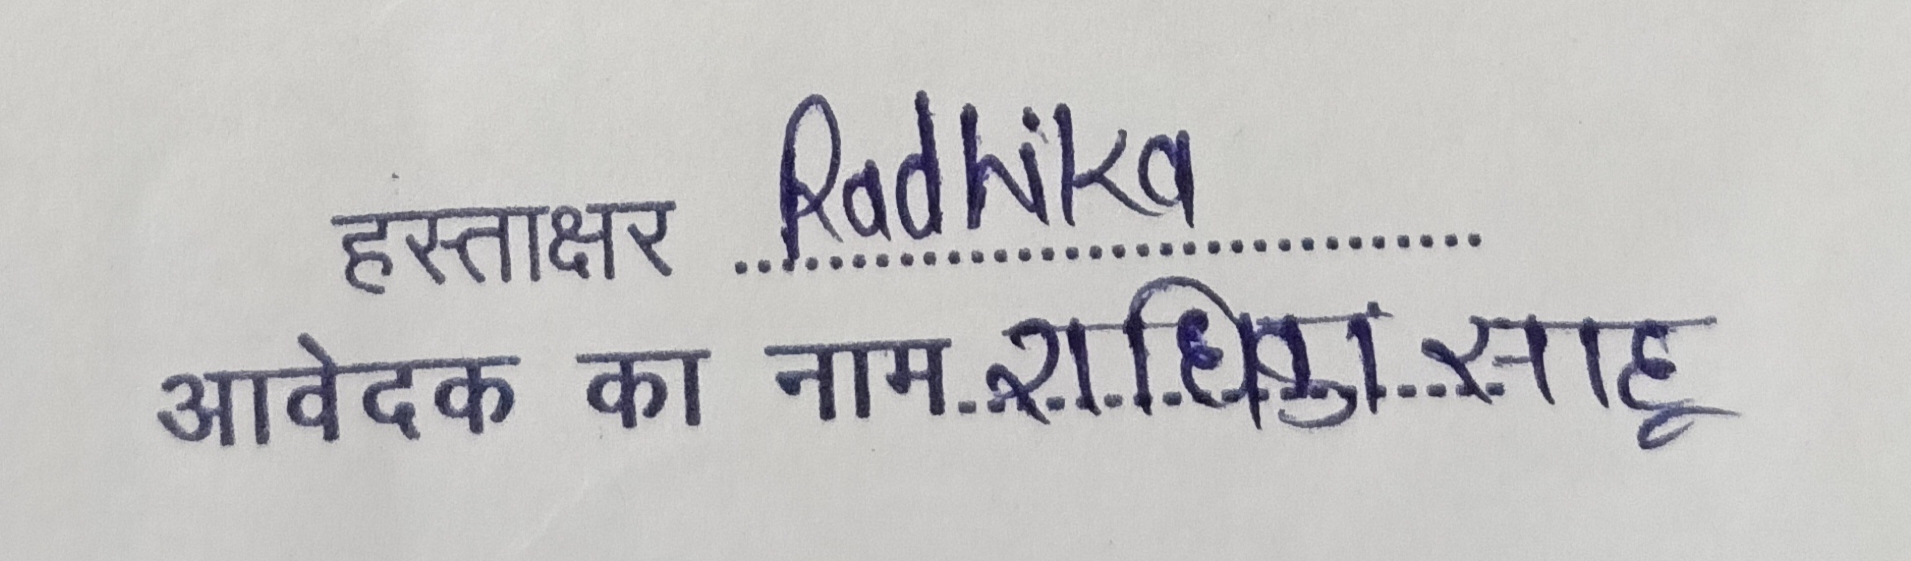 हस्ताक्षर Radhika
आवेदक का नाम राधिका साहू